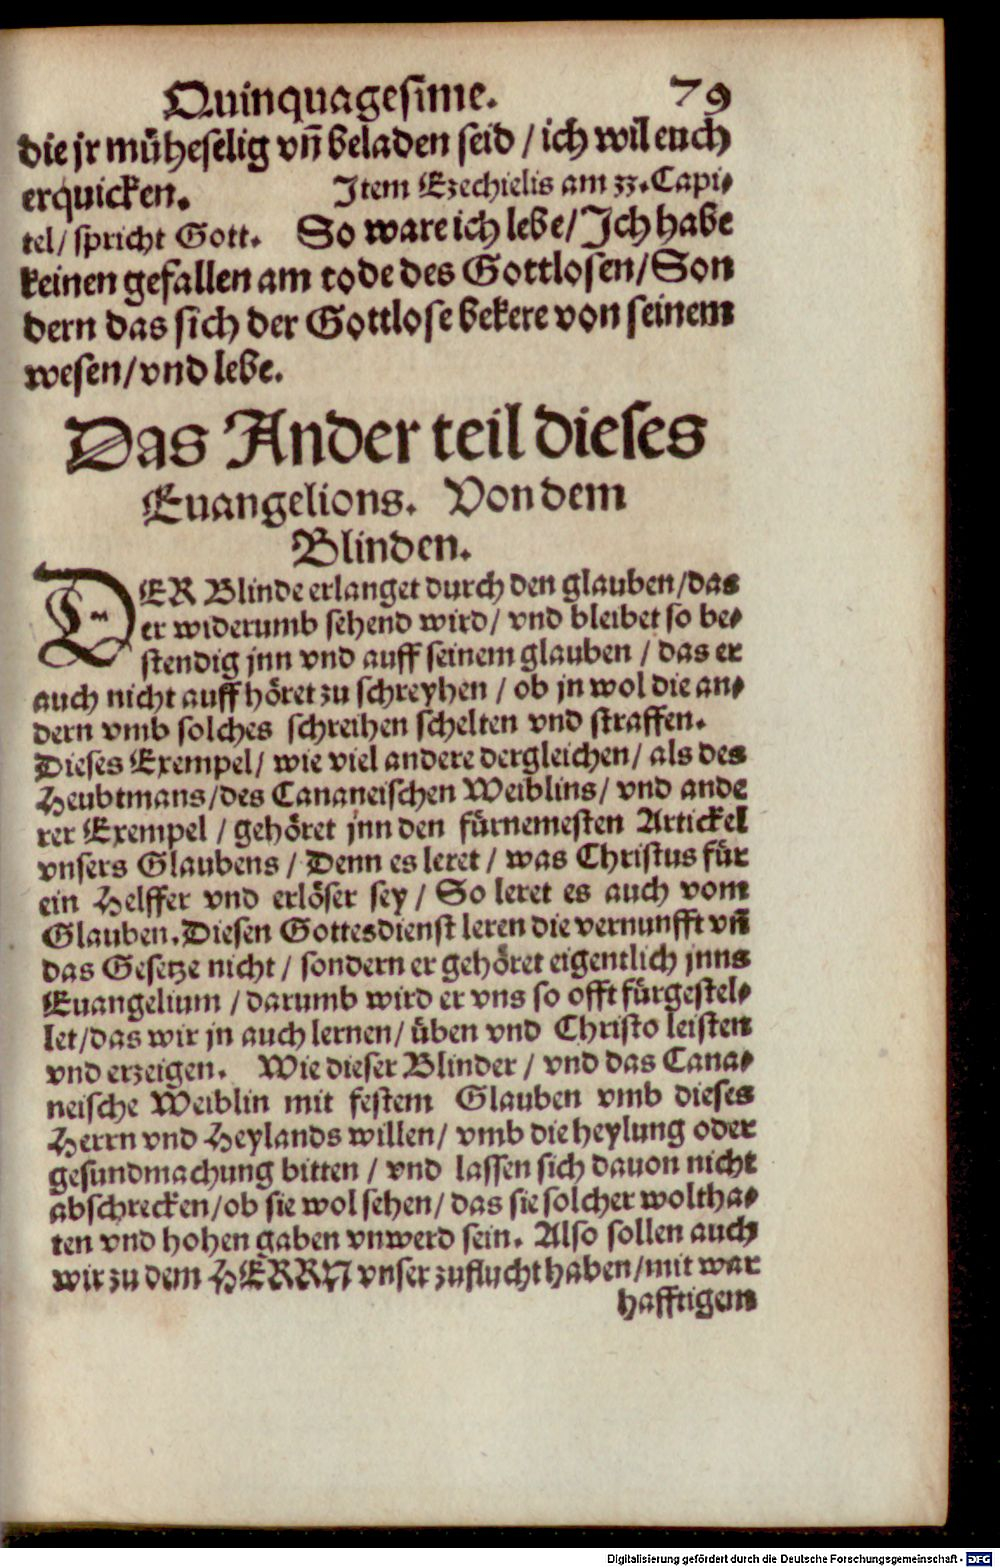 Quinquagesime. 79
die jr müheselig vñ beladen seid / ich wil euch
erquicken. Item Ezechielis am 33. Capi⸗
tel / spricht Gott. So ware ich lebe / Ich habe
keinen gefallen am tode des Gottlosen / Son
dern das sich der Gottlose bekere von seinem
wesen / vnd lebe.
Das Ander teil dieses
Euangelions. Von dem
Blinden.
DER Blinde erlanget durch den glauben / das
er widerumb sehend wird / vnd bleibet so be⸗
stendig jnn vnd auff seinem glauben / das er
auch nicht auff höret zu schreyhen / ob jn wol die an⸗
dern vmb solches schreihen schelten vnd straffen.
Dieses Exempel / wie viel andere dergleichen / als des
Heubtmans / des Cananeischen Weiblins / vnd ande
rer Exempel / gehöret jnn den fürnemesten Artickel
vnsers Glaubens / Denn es leret / was Christus für
ein Helffer vnd erlöser sey / So leret es auch vom
Glauben. Diesen Gottesdienst leren die vernunfft vñ
das Gesetze nicht / sondern er gehöret eigentlich jnns
Euangelium / darumb wird er vns so offt fürgestel⸗
let / das wir jn auch lernen / üben vnd Christo leisten
vnd erzeigen. Wie dieser Blinder / vnd das Cana⸗
neische Weiblin mit festem Glauben vmb dieses
Herrn vnd Heylands willen / vmb die heylung oder
gesundmachung bitten / vnd lassen sich dauon nicht
abschrecken / ob sie wol sehen / das sie solcher woltha⸗
ten vnd hohen gaben vnwerd sein. Also sollen auch
wir zu dem HERRN vnser zuflucht haben / mit war
hafftigem
Digitalisierung gefördert durch die Deutsche Forschungsgemeinschaft - DFG